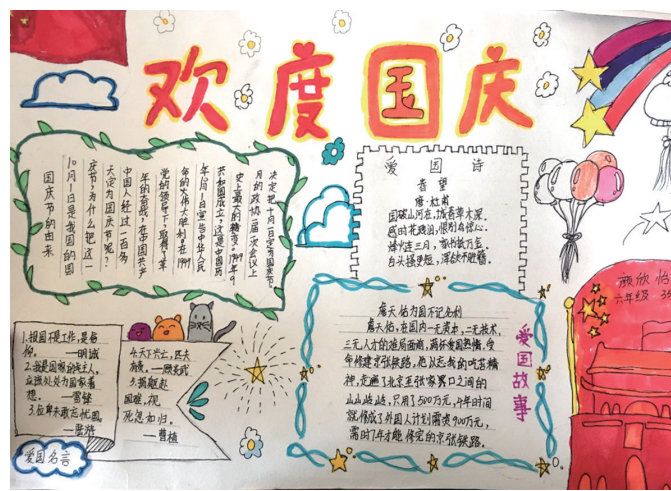 欢度国庆
国庆节的由来
10月1日是我国的国
庆节,为什么把这一
天定为国庆节呢?
中国人经过一百多
年的奋战,在中国共产
党的领导下,取得了革
命的伟大胜利。在1949
年10月1日宣告中华人民
共和国成立,这是中国历
史上最大的转变。1949年9
月的政协一届一次会议上
决定把十月一日定为国庆节。
爱国诗
春望
唐·杜甫
国破山河在,城春草木深。
感时花溅泪,恨别鸟惊心。
烽火连三月,家书抵万金。
白头搔更短,浑欲不胜簪。
颜欣怡
六年级
爱国故事
詹天佑为国不记名利
詹天佑,在国内一无资本,二无技术,
三无人才的难局面前,满怀爱国热情,受
命修建京张铁路,他以忘我的吃苦精
神,走遍了北京至张家界口之间的
山山岭岭,只用了500万元,4年时间
就修成了外国人计划需资900万元,
需时7年才能修完的京张铁路。
1.报国不是工作,是每
2.我是国家的主人,
应该处处为国家着
想。——雷锋
3.位卑未敢忘忧国。
4.天下兴亡,匹夫
有责。——顾炎武
5.捐躯赴
国难,视
死忽如归。
——曹植
爱国名言